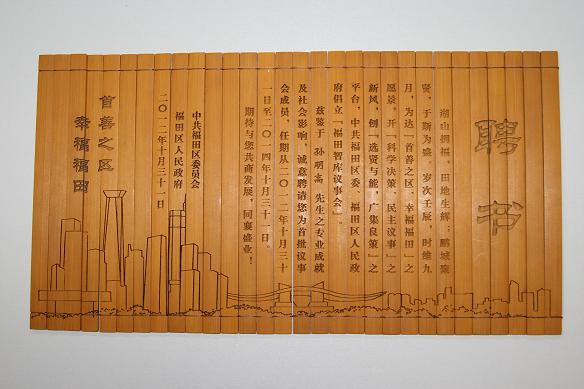 聘书
湖山拥福，田地生辉；鹏城聚
贤，于斯为盛。岁次壬辰，时维九
月，为达「首善之区，幸福福田」之
愿景，开「科学决策，民主议事」之
新风，创「选贤与能，广集良策」之
平台，中共福田区委、福田区人民政
府倡立「福田智库议事会」。
兹鉴于 孙明高 先生之专业成就
及社会影响，诚意聘请您为首批议事
会成员，任期从二〇一二年十月三十
一日至二〇一四年十月三十一日。
期待与您共商发展，同襄盛业！
中共福田区委员会
福田区人民政府
二〇一二年十月三十一日
首善之区
幸福福田